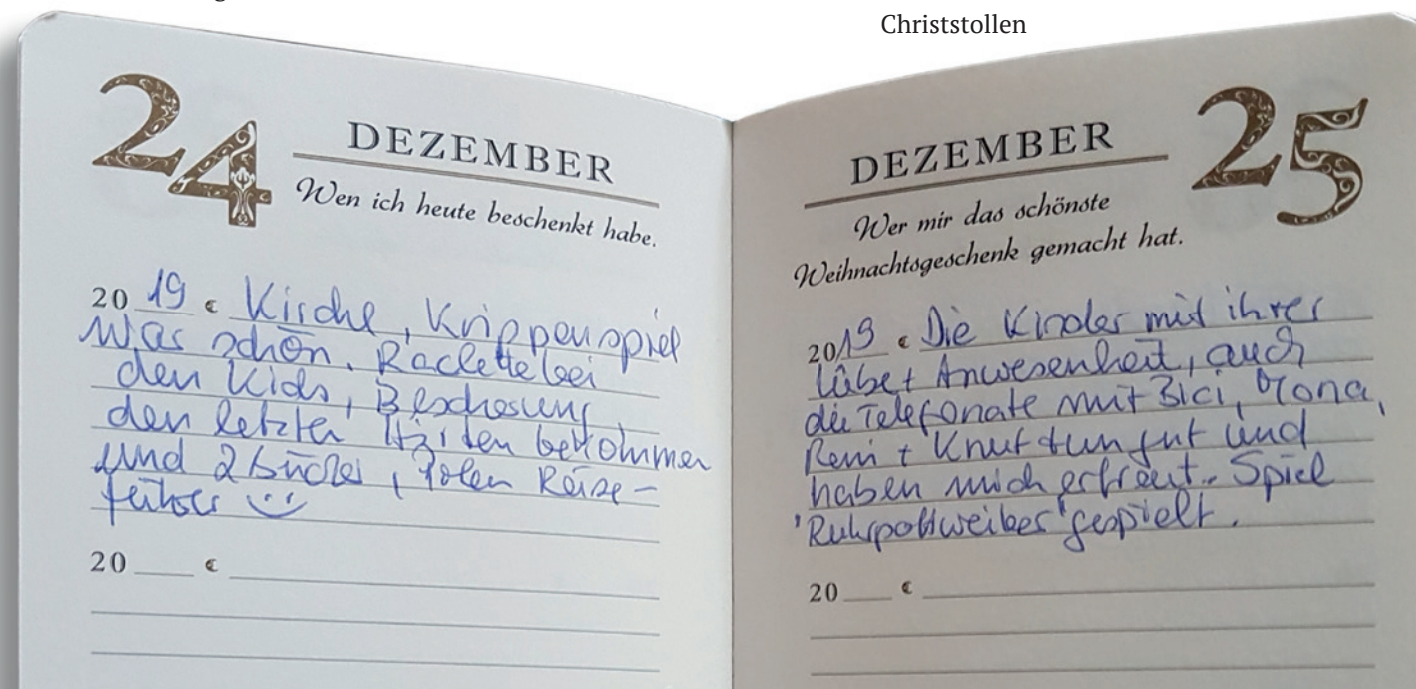 Christstollen
24
DEZEMBER
Wen ich heute beschenkt habe.
2019 Kirche, Krippenspiel
war schön. Raclette bei
den Kids, Bescherung
den letzten Hirten bekommen
und 2 Bücher, Polen Reise-
führer
20
DEZEMBER
25
Wer mir das schönste
Weihnachtsgeschenk gemacht hat.
2019 Die Kinder mit ihrer
Anwesenheit, auch
die Telefonate mit
Reni + Knut tun gut und
haben mich erfreut. Spiel
'Ruhrpottweiber' gespielt.
20